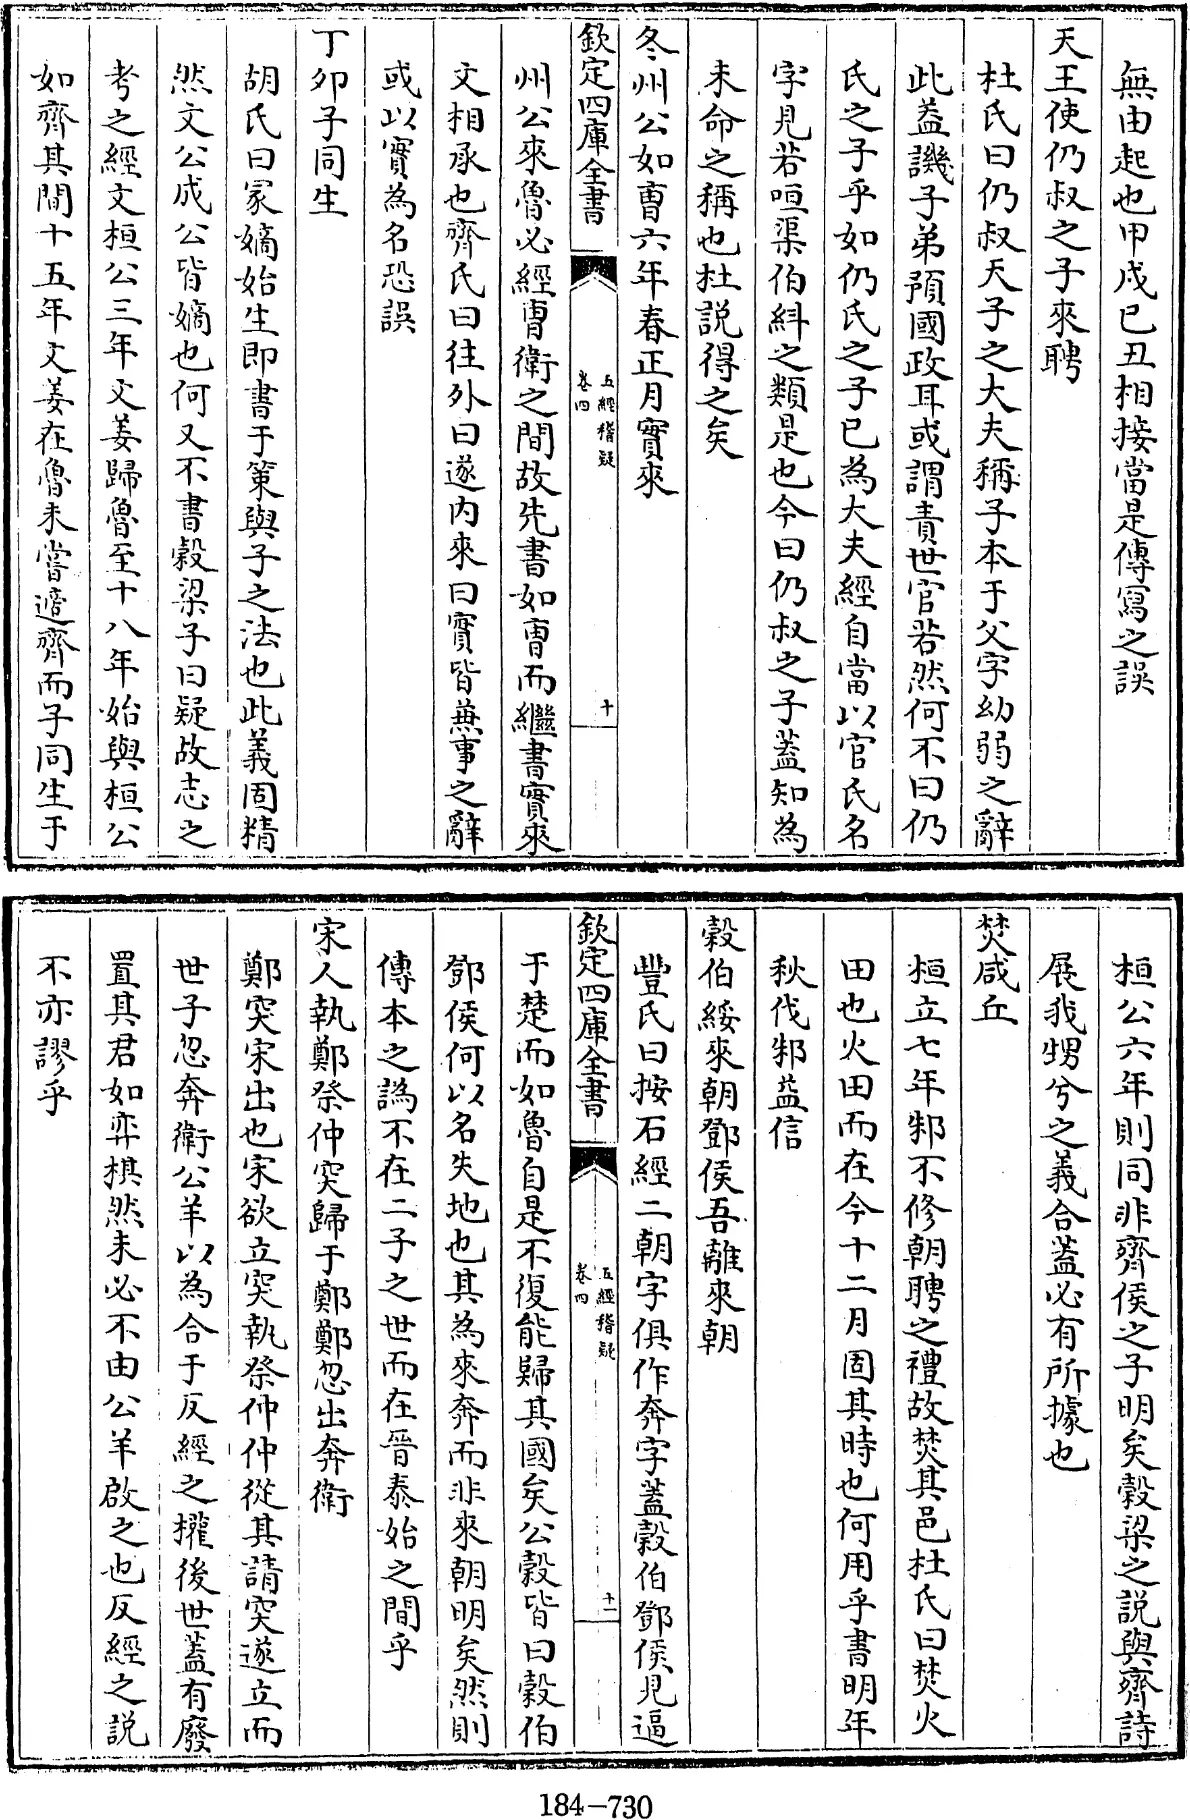 無由起也甲戍已丑相接當是傳寫之誤
天王使仍叔之子來聘
杜氏曰仍叔天子之大夫稱子本于父字幼弱之辭
此益譏子弟預國政耳或謂責世官若然何不曰仍
氏之子乎如仍氏之子已為大夫經自當以官氏名
字見若咺渠伯糾之類是也今曰仍叔之子蓋知為
未命之稱也杜説得之矣
冬州公如曺六年春正月實來
欽定四庫全書
五經稽疑
卷四
十
州公來魯必經曺衛之間故先書如曺而繼書實來
文相承也齊氏曰往外曰遂内來曰實皆蒹事之辭
或以實為名恐誤
丁夘子同生
胡氏曰冡嫡始生即書于策與子之法也此義固精
然文公成公皆嫡也何又不書穀梁子曰疑故志之
考之經文桓公三年文姜歸魯至十八年始與桓公
如齊其間十五年文姜在魯未嘗適齊而子同生于
桓公六年則同非齊侯之子明矣穀梁之説與齊詩
展我甥兮之義合蓋必有所據也
焚咸丘
桓立七年邾不修朝聘之禮故焚其邑杜氏曰焚火
田也火田而在今十二月固其時也何用乎書明年
秋伐邾益信
穀伯綏來朝鄧侯吾離來朝
豐氏曰按石經二朝字俱作奔字蓋穀伯鄧侯見逼
欽定四庫全書
五經稽疑
卷四
十一
于楚而如魯自是不復能歸其國矣公穀皆曰穀伯
鄧侯何以名失地也其為來奔而非來朝明矣然則
傳本之譌不在二子之世而在晉泰始之間乎
宋人執鄭祭仲突歸于鄭鄭忽出奔衛
鄭突宋出也宋欲立突執祭仲仲從其請突遂立而
世子忽奔衛公羊以為合于反經之權後世蓋有廢
置其君如弈棋然未必不由公羊啟之也反經之説
不亦謬乎
184-730